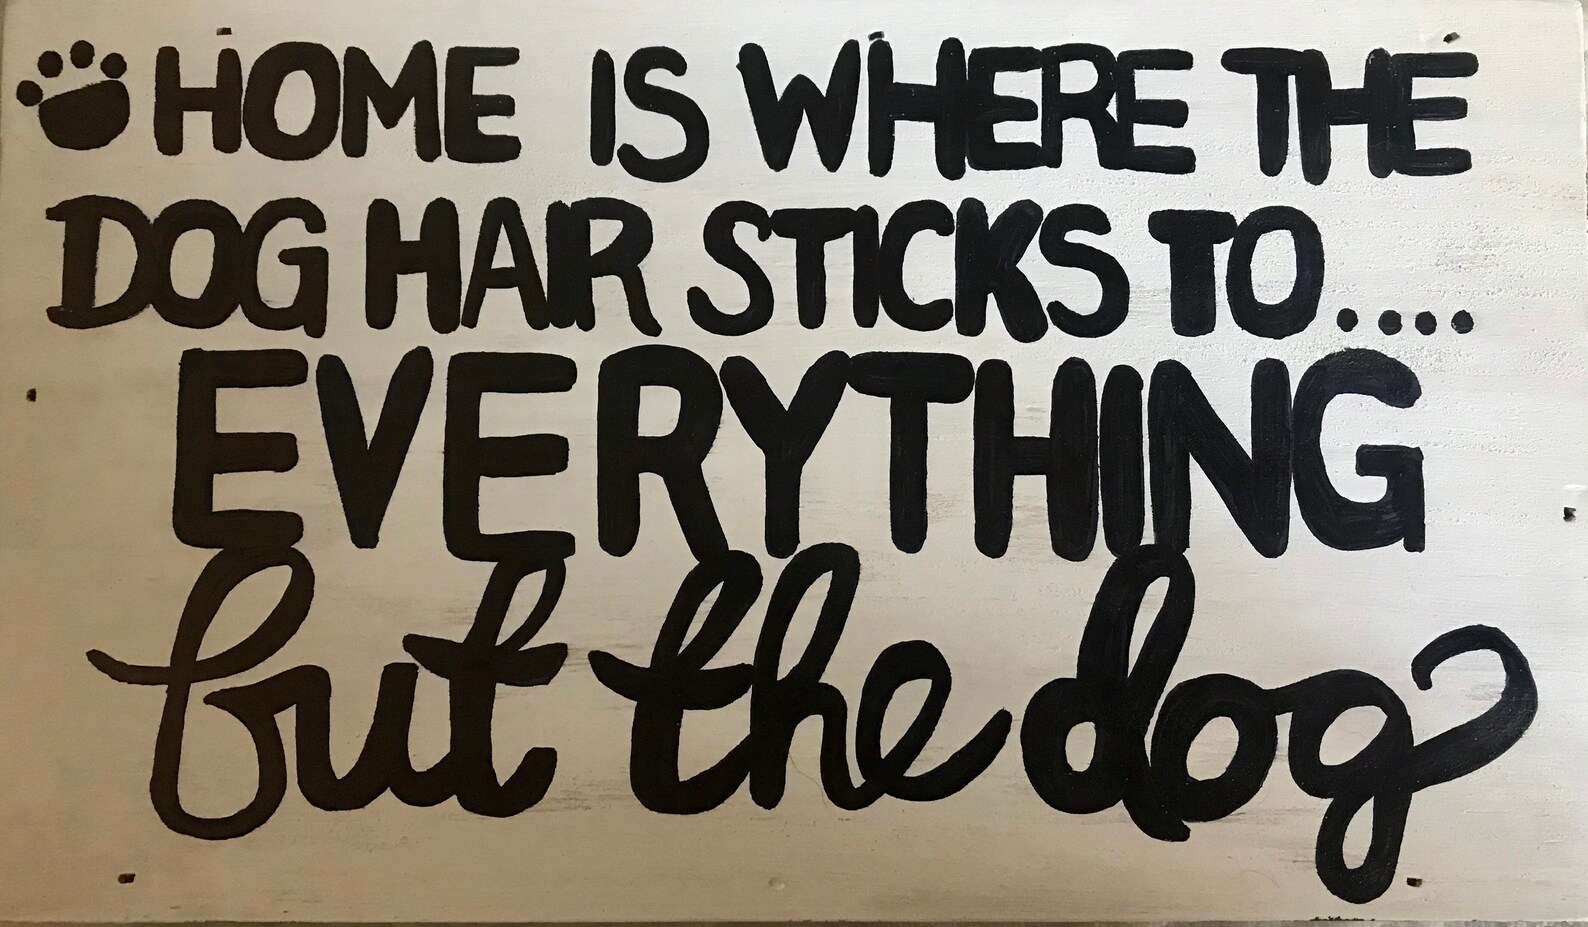 HOME IS WHERE THE
DOG HAIR STICKS TO....
EVERYTHING
but the dog